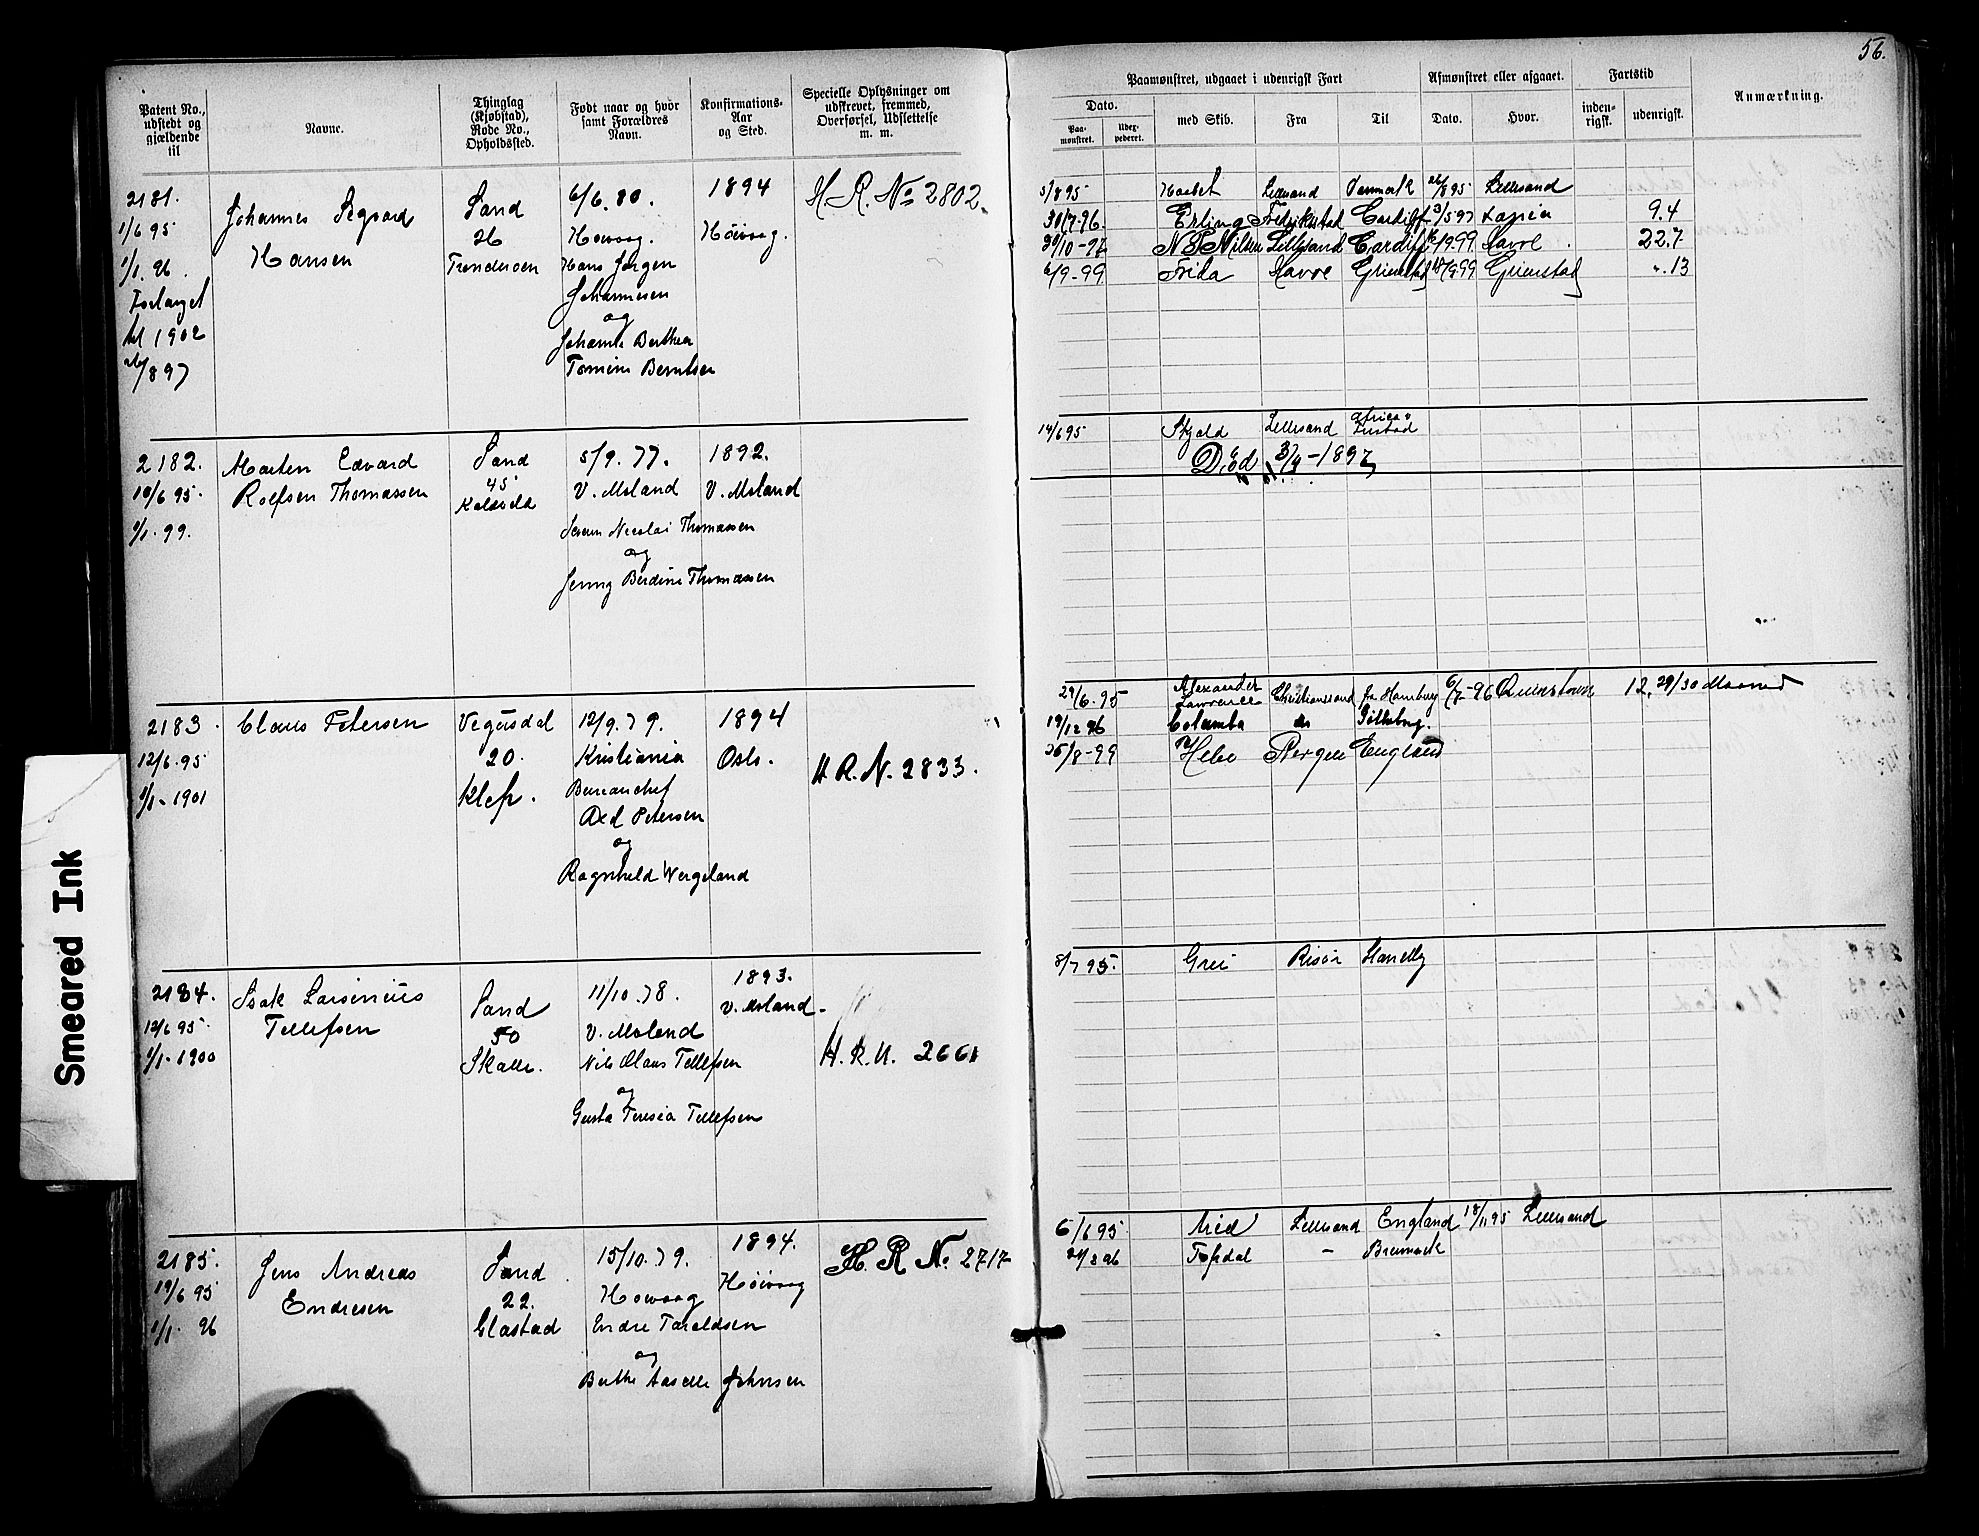 56.
Patent No., udstedt og gjældende til
Navne.
Thinglag (Kjøbstad), Rode No., Opholdssted.
Født naar og hvor samt Forældres Navn.
Konfirmations-Aar og Sted.
Specielle Oplysninger om udskrevet, fremmed, Overførsel, Udslettelse m. m.
Paamønstret, udgaaet i udenrigsk Fart
Afmønstret eller afgaaet.
Fartstid
Anmærkning.
Dato.
Paa-mønstret.
Udex-pederet.
med Skib.
Fra
Til
Dato.
Hvor.
inden-rigsk.
udenrigsk.
2181.
1/6 95
1/1. 96.
til 1902
26/8 97
Johannes Sigvard
Hansen
Sand
6/6. 80.
Høivaag.
Hans Jørgen
Johannesen
og
Berthea
Tomine Berntsen
1894
Høivaag.
H. R. No 2802.
5/8 95 Lillesand Danmark 26/8 95 Lillesand
30/7-96. Erling Fredrikstad Cardiff 3/5 97 9.4
30/10-97 Lillesand Cardiff Havre. 22.7
6/9-99 Frida Havre Grimstad Grimstad 13
2182.
10/6 95.
1/1. 99.
Morten Edvard
Rolfsen Thomassen
Sand
45
5/9. 77.
V. Moland
Nicolai Thomassen
og
Jenny Berdine Thomassen
1892.
V. Moland
14/6 95 Skjold Lillesand
Død 3/9-1897
2183.
12/6.95
1/1-1901
Claus Petersen
Vegusdal
20.
Klep.
12/9.79.
Kristiania
Bureauchef
Axel Petersen
og
Ragnhild Wergeland
1894
Oslo.
H. R. N. 2833.
29/6.95 Alexander Lawrence Christianssand 6/7-96 Queenstown 12. 29/30 Maaned
19/12 96 Columba
25/8-99 Hebe Bergen England
2184.
12/6 95.
1/1-1900
Isak Larsenius
Tellefsen
Sand
50
11/10.78.
V. Moland
Nils Olaus Tellefsen
og
Teresia Tellefsen
1893.
V. Moland.
H. R. N. 2661
8/7 95. Risør
2185.
19/6 95
1/1. 96
Jens Andreas
Endresen
Sand
22.
Glastad
15/10.79.
Høivaag
Endre Taraldsen
og
Berthe Johnsen
1894.
Høivaag
H. R No. 2717
6/6 95 Lillesand England 18/11 95 Lillesand
Tofdal –
Smeared Ink